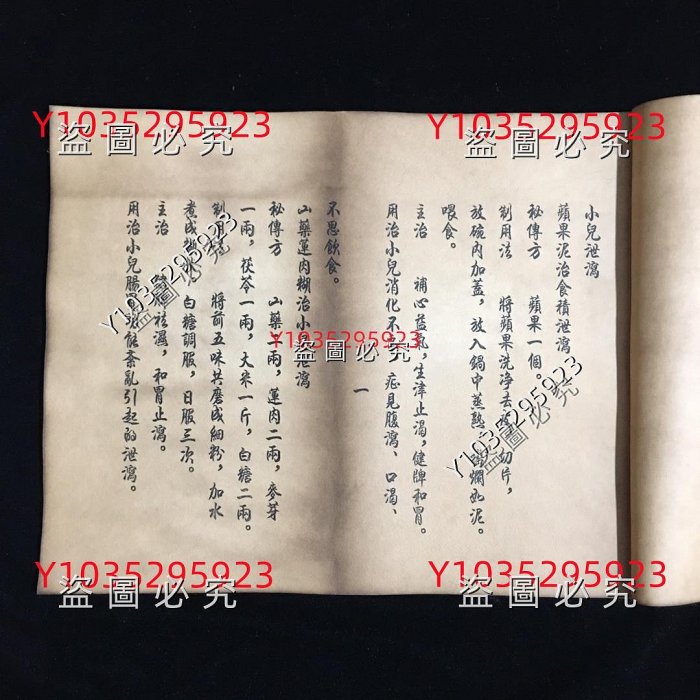 Y1035295923
盜圖必究
Y1035295923
盜圖必究
小兒泄瀉
蘋果泥治食積泄瀉
秘傳方 蘋果一個。
制用法 將蘋果洗净去 切片，
放碗内加蓋，放入鍋中蒸熟， 爛如泥。
喂食。
主治 補心益氣，生津止渴，健脾和胃。
用治小兒消化不 症見腹瀉、口渴、
一
不思飲食。
山藥蓮肉糊治小 泄瀉
秘傳方 山藥 兩，蓮肉二兩，麥芽
一兩，茯苓一兩，大米一斤，白糖二兩。
制用法 將前五味共磨成細粉，加水
煮成糊 白糖調服，日服三次。
主治 祛濕，和胃止瀉。
用治小兒腸 功能紊亂引起的泄瀉。
Y1035295923
盜圖必究
Y1035295923
Y1035295923
盜圖必究
Y1035295923
盜圖必究
Y1035295923
盜圖必究